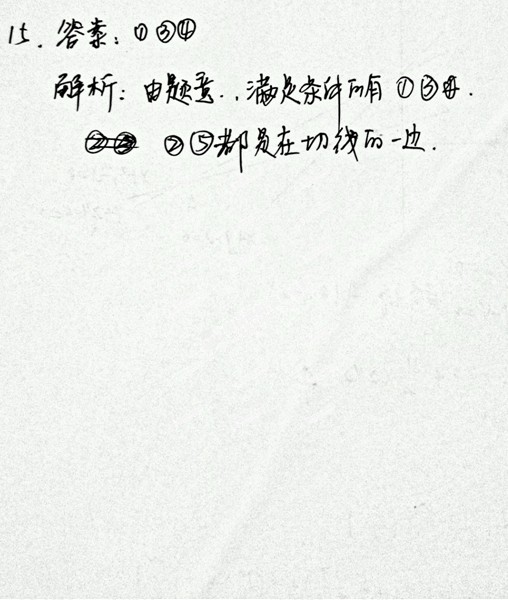 15. 答案：①③④
解析：由题意，满足条件的有 ①③④.
②⑤都是在切线的一边.